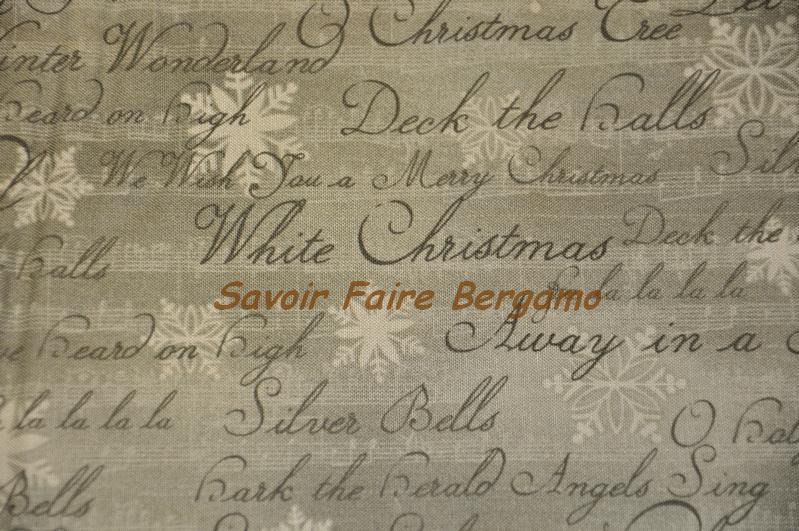 O Christmas Tree
Winter Wonderland
Heard on High
Deck the Halls
We Wish You a Merry Christmas
White Christmas
Deck the
Halls
la la la la
Savoir Faire Bergamo
Heard on High
Away in a
la la la la
Silver Bells
O
Bells
Hark the Herald Angels Sing